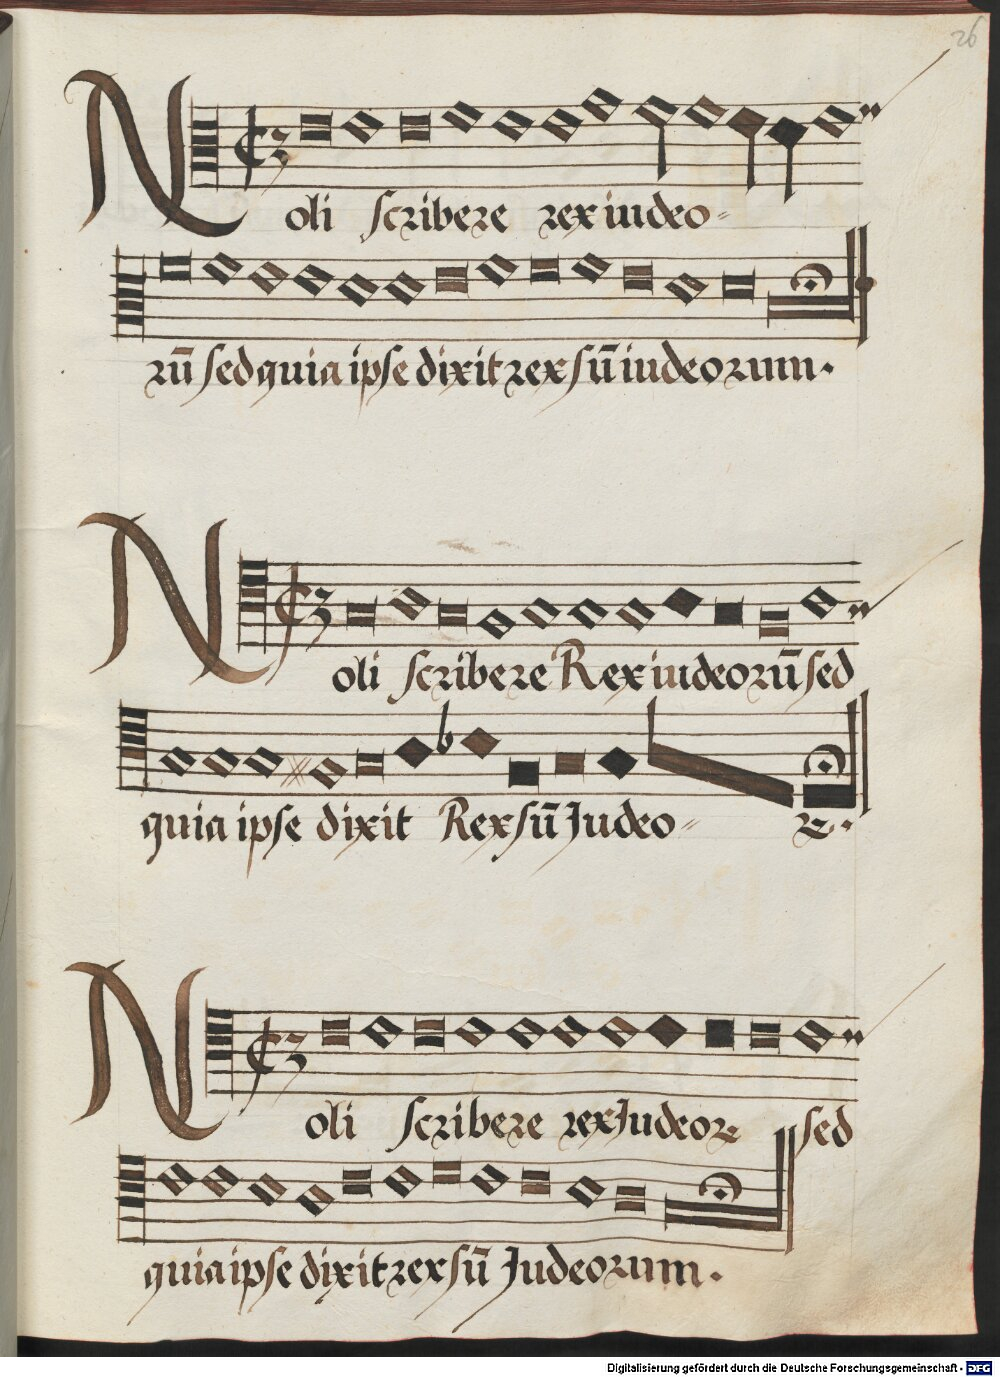 26
Noli scribere rex iudeo=
rū sed quia ipse dixit rex sū iudeorum.
Noli scribere Rex iudeorū sed
quia ipse dixit Rex sū Judeo= ꝝ.
Noli scribere rex Judeoꝝ sed
quia ipse dixit rex sū Judeorum.
Digitalisierung gefördert durch die Deutsche Forschungsgemeinschaft - DFG